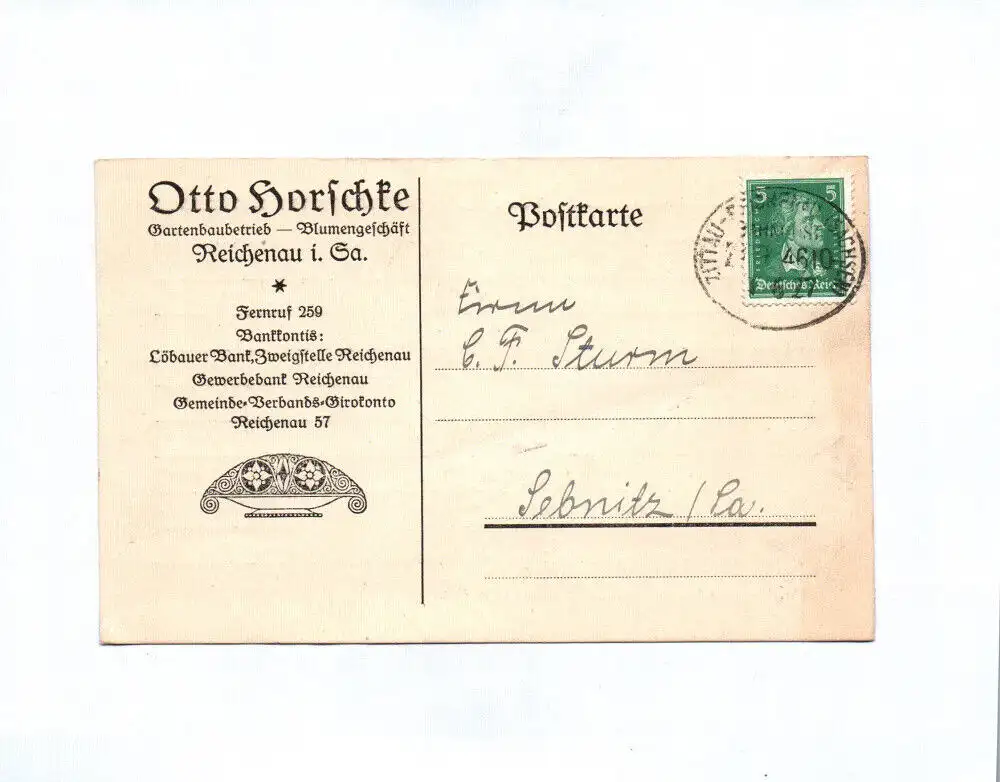 Otto Horschke
Gartenbaubetrieb — Blumengeschäft
Reichenau i. Sa.
*
Fernruf 259
Bankkontis:
Löbauer Bank, Zweigstelle Reichenau
Gewerbebank Reichenau
Gemeinde-Verbands-Girokonto
Reichenau 57
Postkarte
5 5
Deutsches Reich
ZITTAU-
4610
27
Herrn
C. F. Sturm
Sebnitz / Sa.